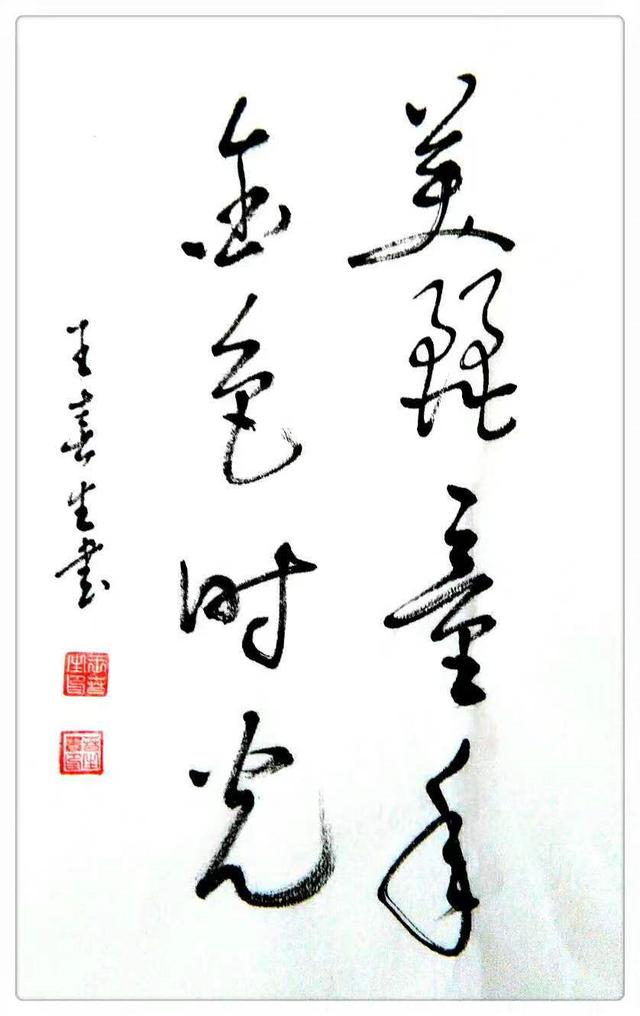 美丽童年
金色时光
王喜生书